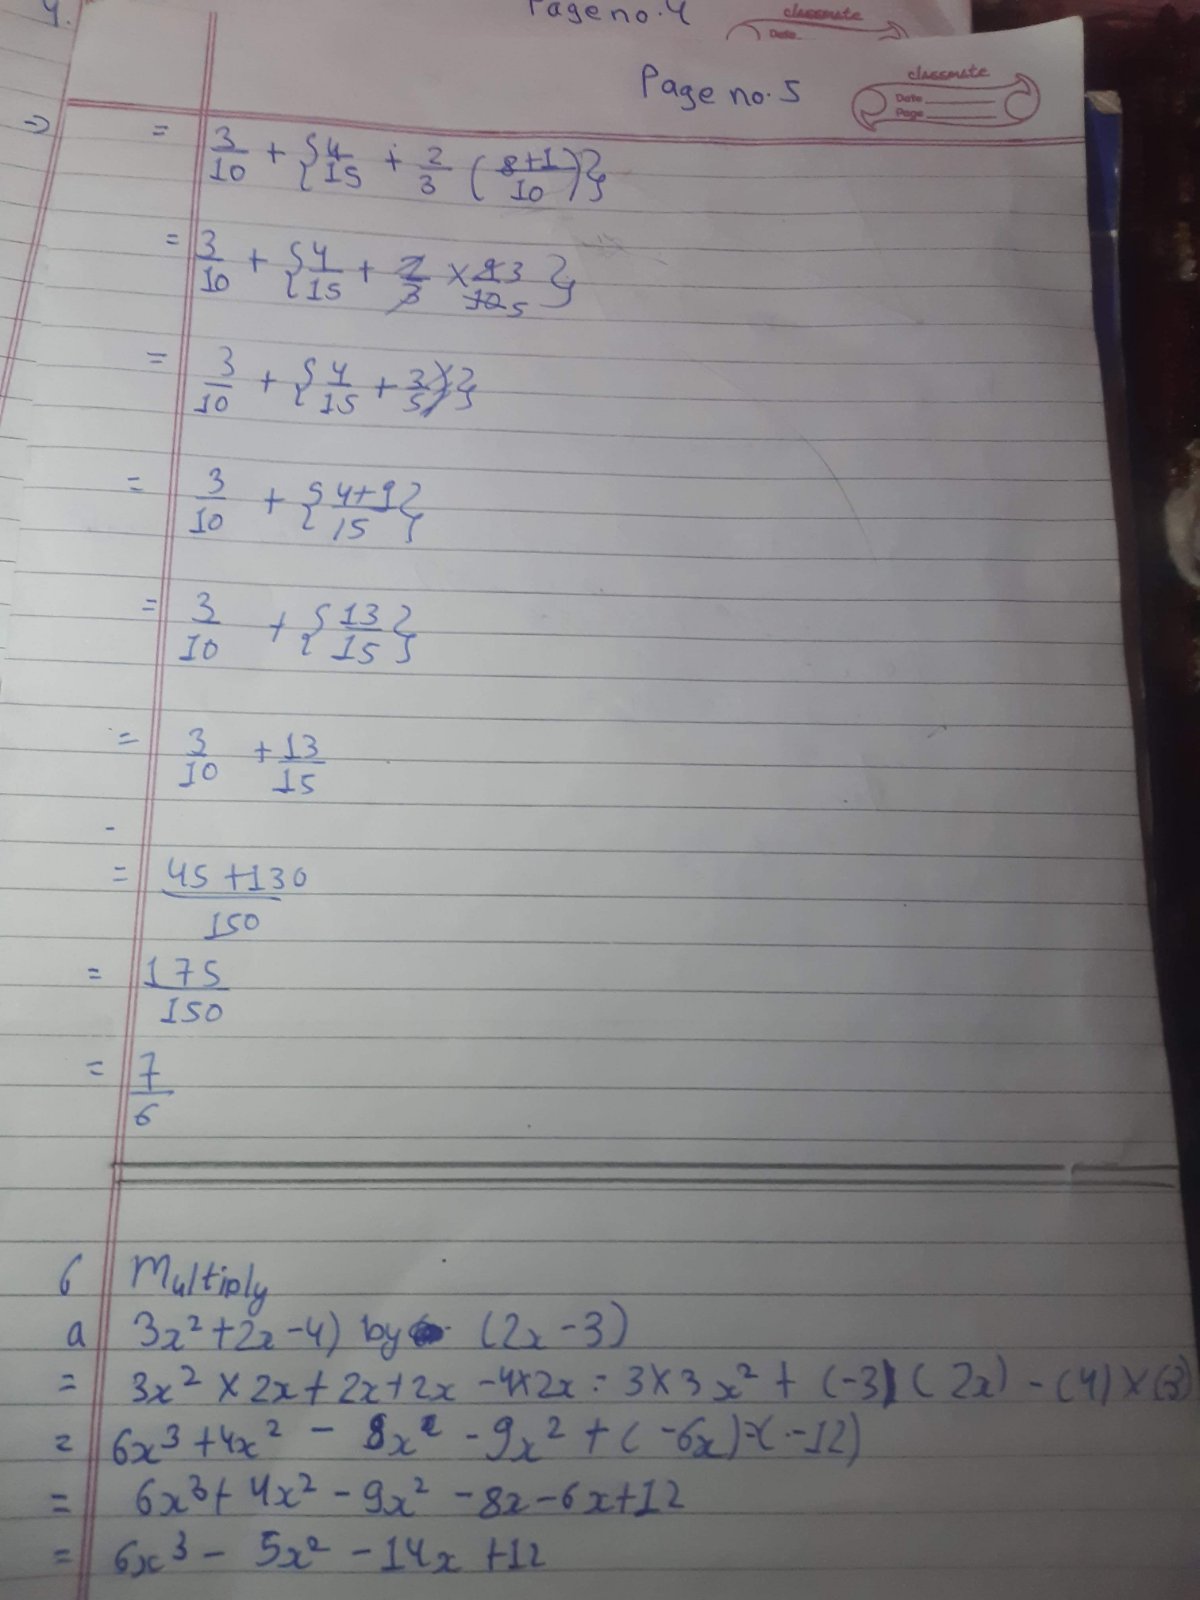 4.
Page no. 4
classmate
Date
Page no. 5
classmate
Date
Page
→ = 3/10 + {4/15 + 2/3 (8+1/10)}
= 3/10 + {4/15 + 2/3 × 9 3/10 5}
= 3/10 + {4/15 + 3/5)}
= 3/10 + {4+9/15}
= 3/10 + {13/15}
= 3/10 + 13/15
-
= 45+130/150
= 175/150
= 7/6
6 Multiply
a 3x²+2x-4) by (2x-3)
= 3x² × 2x + 2x + 2x - 4×2x - 3×3x² + (-3) (2x) - (4) × (3)
= 6x³ + 4x² - 8x - 9x² + (-6x) - (-12)
= 6x³ + 4x² - 9x² - 8x - 6x + 12
= 6x³ - 5x² - 14x + 12